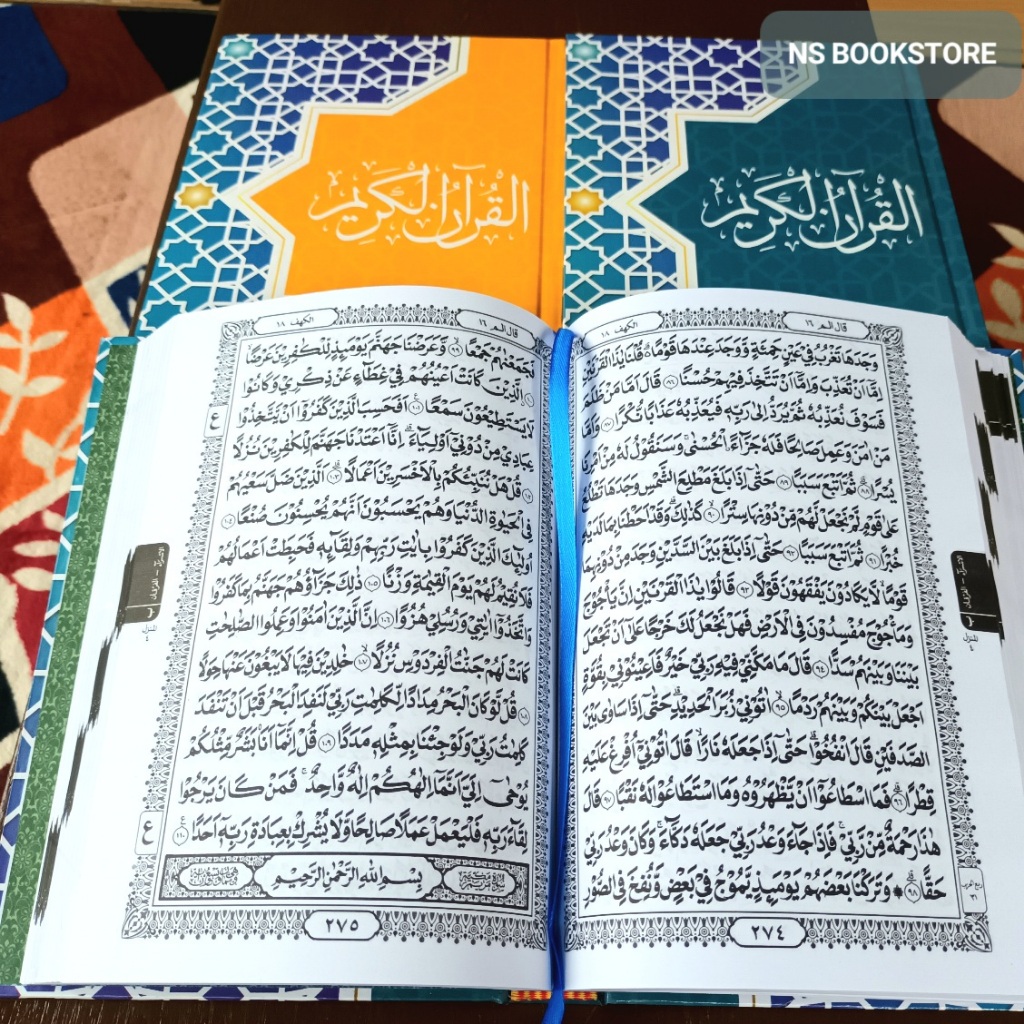 NS BOOKSTORE
القُرآنُ الكَرِيم
القُرآنُ الكَرِيم
قال الم ١٦
الكهف ١٨
وَجَدَهَا تَغْرُبُ فِيْ عَيْنٍ حَمِئَةٍ وَّوَجَدَ عِنْدَهَا قَوْمًا ەۗ قُلْنَا يٰذَا الْقَرْنَيْنِ
اِمَّآ اَنْ تُعَذِّبَ وَاِمَّآ اَنْ تَتَّخِذَ فِيْهِمْ حُسْنًا ٨٦ قَالَ اَمَّا مَنْ ظَلَمَ
فَسَوْفَ نُعَذِّبُهٗ ثُمَّ يُرَدُّ اِلٰى رَبِّهٖ فَيُعَذِّبُهٗ عَذَابًا نُّكْرًا ٨٧ وَاَمَّا
مَنْ اٰمَنَ وَعَمِلَ صَالِحًا فَلَهٗ جَزَآءً ۨالْحُسْنٰىۚ وَسَنَقُوْلُ لَهٗ مِنْ اَمْرِنَا
يُسْرًا ٨٨ ثُمَّ اَتْبَعَ سَبَبًا ٨٩ حَتّٰىٓ اِذَا بَلَغَ مَطْلِعَ الشَّمْسِ وَجَدَهَا تَطْلُعُ
عَلٰى قَوْمٍ لَّمْ نَجْعَلْ لَّهُمْ مِّنْ دُوْنِهَا سِتْرًا ٩٠ كَذٰلِكَۗ وَقَدْ اَحَطْنَا بِمَا لَدَيْهِ
خُبْرًا ٩١ ثُمَّ اَتْبَعَ سَبَبًا ٩٢ حَتّٰىٓ اِذَا بَلَغَ بَيْنَ السَّدَّيْنِ وَجَدَ مِنْ دُوْنِهِمَا
قَوْمًا لَّا يَكَادُوْنَ يَفْقَهُوْنَ قَوْلًا ٩٣ قَالُوْا يٰذَا الْقَرْنَيْنِ اِنَّ يَأْجُوْجَ
وَمَأْجُوْجَ مُفْسِدُوْنَ فِى الْاَرْضِ فَهَلْ نَجْعَلُ لَكَ خَرْجًا عَلٰٓى اَنْ تَجْعَلَ
بَيْنَنَا وَبَيْنَهُمْ سَدًّا ٩٤ قَالَ مَا مَكَّنِّيْ فِيْهِ رَبِّيْ خَيْرٌ فَاَعِيْنُوْنِيْ بِقُوَّةٍ
اَجْعَلْ بَيْنَكُمْ وَبَيْنَهُمْ رَدْمًا ٩٥ اٰتُوْنِيْ زُبَرَ الْحَدِيْدِۗ حَتّٰىٓ اِذَا سَاوٰى بَيْنَ
الصَّدَفَيْنِ قَالَ انْفُخُوْاۗ حَتّٰىٓ اِذَا جَعَلَهٗ نَارًاۙ قَالَ اٰتُوْنِيْٓ اُفْرِغْ عَلَيْهِ
قِطْرًا ٩٦ فَمَا اسْطَاعُوْٓا اَنْ يَّظْهَرُوْهُ وَمَا اسْتَطَاعُوْا لَهٗ نَقْبًا ٩٧ قَالَ
هٰذَا رَحْمَةٌ مِّنْ رَّبِّيْۚ فَاِذَا جَآءَ وَعْدُ رَبِّيْ جَعَلَهٗ دَكَّآءَۚ وَكَانَ وَعْدُ رَبِّيْ
حَقًّا ٩٨ وَتَرَكْنَا بَعْضَهُمْ يَوْمَىِٕذٍ يَّمُوْجُ فِيْ بَعْضٍ وَّنُفِخَ فِى الصُّوْرِ
٢٧٤
قال الم ١٦
الكهف ١٨
فَجَمَعْنٰهُمْ جَمْعًا ٩٩ وَّعَرَضْنَا جَهَنَّمَ يَوْمَىِٕذٍ لِّلْكٰفِرِيْنَ عَرْضًا
١٠٠ الَّذِيْنَ كَانَتْ اَعْيُنُهُمْ فِيْ غِطَآءٍ عَنْ ذِكْرِيْ وَكَانُوْا
لَا يَسْتَطِيْعُوْنَ سَمْعًا ١٠١ اَفَحَسِبَ الَّذِيْنَ كَفَرُوْٓا اَنْ يَّتَّخِذُوْا
عِبَادِيْ مِنْ دُوْنِيْٓ اَوْلِيَآءَۗ اِنَّآ اَعْتَدْنَا جَهَنَّمَ لِلْكٰفِرِيْنَ نُزُلًا
١٠٢ قُلْ هَلْ نُنَبِّئُكُمْ بِالْاَخْسَرِيْنَ اَعْمَالًا ١٠٣ اَلَّذِيْنَ ضَلَّ سَعْيُهُمْ
فِى الْحَيٰوةِ الدُّنْيَا وَهُمْ يَحْسَبُوْنَ اَنَّهُمْ يُحْسِنُوْنَ صُنْعًا ١٠٤
اُولٰۤىِٕكَ الَّذِيْنَ كَفَرُوْا بِاٰيٰتِ رَبِّهِمْ وَلِقَآىِٕهٖ فَحَبِطَتْ اَعْمَالُهُمْ
فَلَا نُقِيْمُ لَهُمْ يَوْمَ الْقِيٰمَةِ وَزْنًا ١٠٥ ذٰلِكَ جَزَآؤُهُمْ جَهَنَّمُ بِمَا كَفَرُوْا
وَاتَّخَذُوْٓا اٰيٰتِيْ وَرُسُلِيْ هُزُوًا ١٠٦ اِنَّ الَّذِيْنَ اٰمَنُوْا وَعَمِلُوا الصّٰلِحٰتِ
كَانَتْ لَهُمْ جَنّٰتُ الْفِرْدَوْسِ نُزُلًا ١٠٧ خٰلِدِيْنَ فِيْهَا لَا يَبْغُوْنَ عَنْهَا حِوَلًا
١٠٨ قُلْ لَّوْ كَانَ الْبَحْرُ مِدَادًا لِّكَلِمٰتِ رَبِّيْ لَنَفِدَ الْبَحْرُ قَبْلَ اَنْ تَنْفَدَ
كَلِمٰتُ رَبِّيْ وَلَوْ جِئْنَا بِمِثْلِهٖ مَدَدًا ١٠٩ قُلْ اِنَّمَآ اَنَا۠ بَشَرٌ مِّثْلُكُمْ
يُوْحٰىٓ اِلَيَّ اَنَّمَآ اِلٰهُكُمْ اِلٰهٌ وَّاحِدٌۚ فَمَنْ كَانَ يَرْجُوْا
لِقَآءَ رَبِّهٖ فَلْيَعْمَلْ عَمَلًا صَالِحًا وَّلَا يُشْرِكْ بِعِبَادَةِ رَبِّهٖٓ اَحَدًا ١١٠
بِسْمِ اللّٰهِ الرَّحْمٰنِ الرَّحِيْمِ
٢٧٥
ع
ع